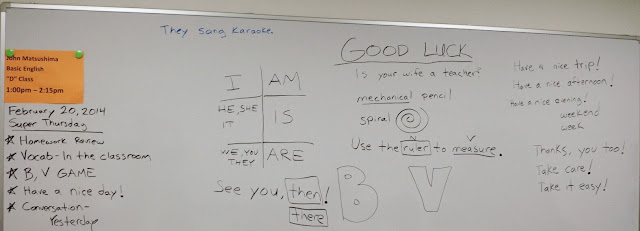 They sang Karaoke.
John Matsushima
Basic English
"D" Class
1:00pm – 2:15pm
February 20, 2014
Super Thursday
Homework Review
Vocab - In the classroom
B, V GAME
Have a nice day!
Conversation -
Yesterday
I AM
HE, SHE
IT
IS
WE, YOU
THEY
ARE
See you, then!
there
GOOD LUCK
Is your wife a teacher?
mechanical pencil
spiral
Use the ruler to measure.
N V
B V
Have a nice trip!
Have a nice afternoon!
Have a nice evening!
weekend
week
Thanks, you too!
Take care!
Take it easy!